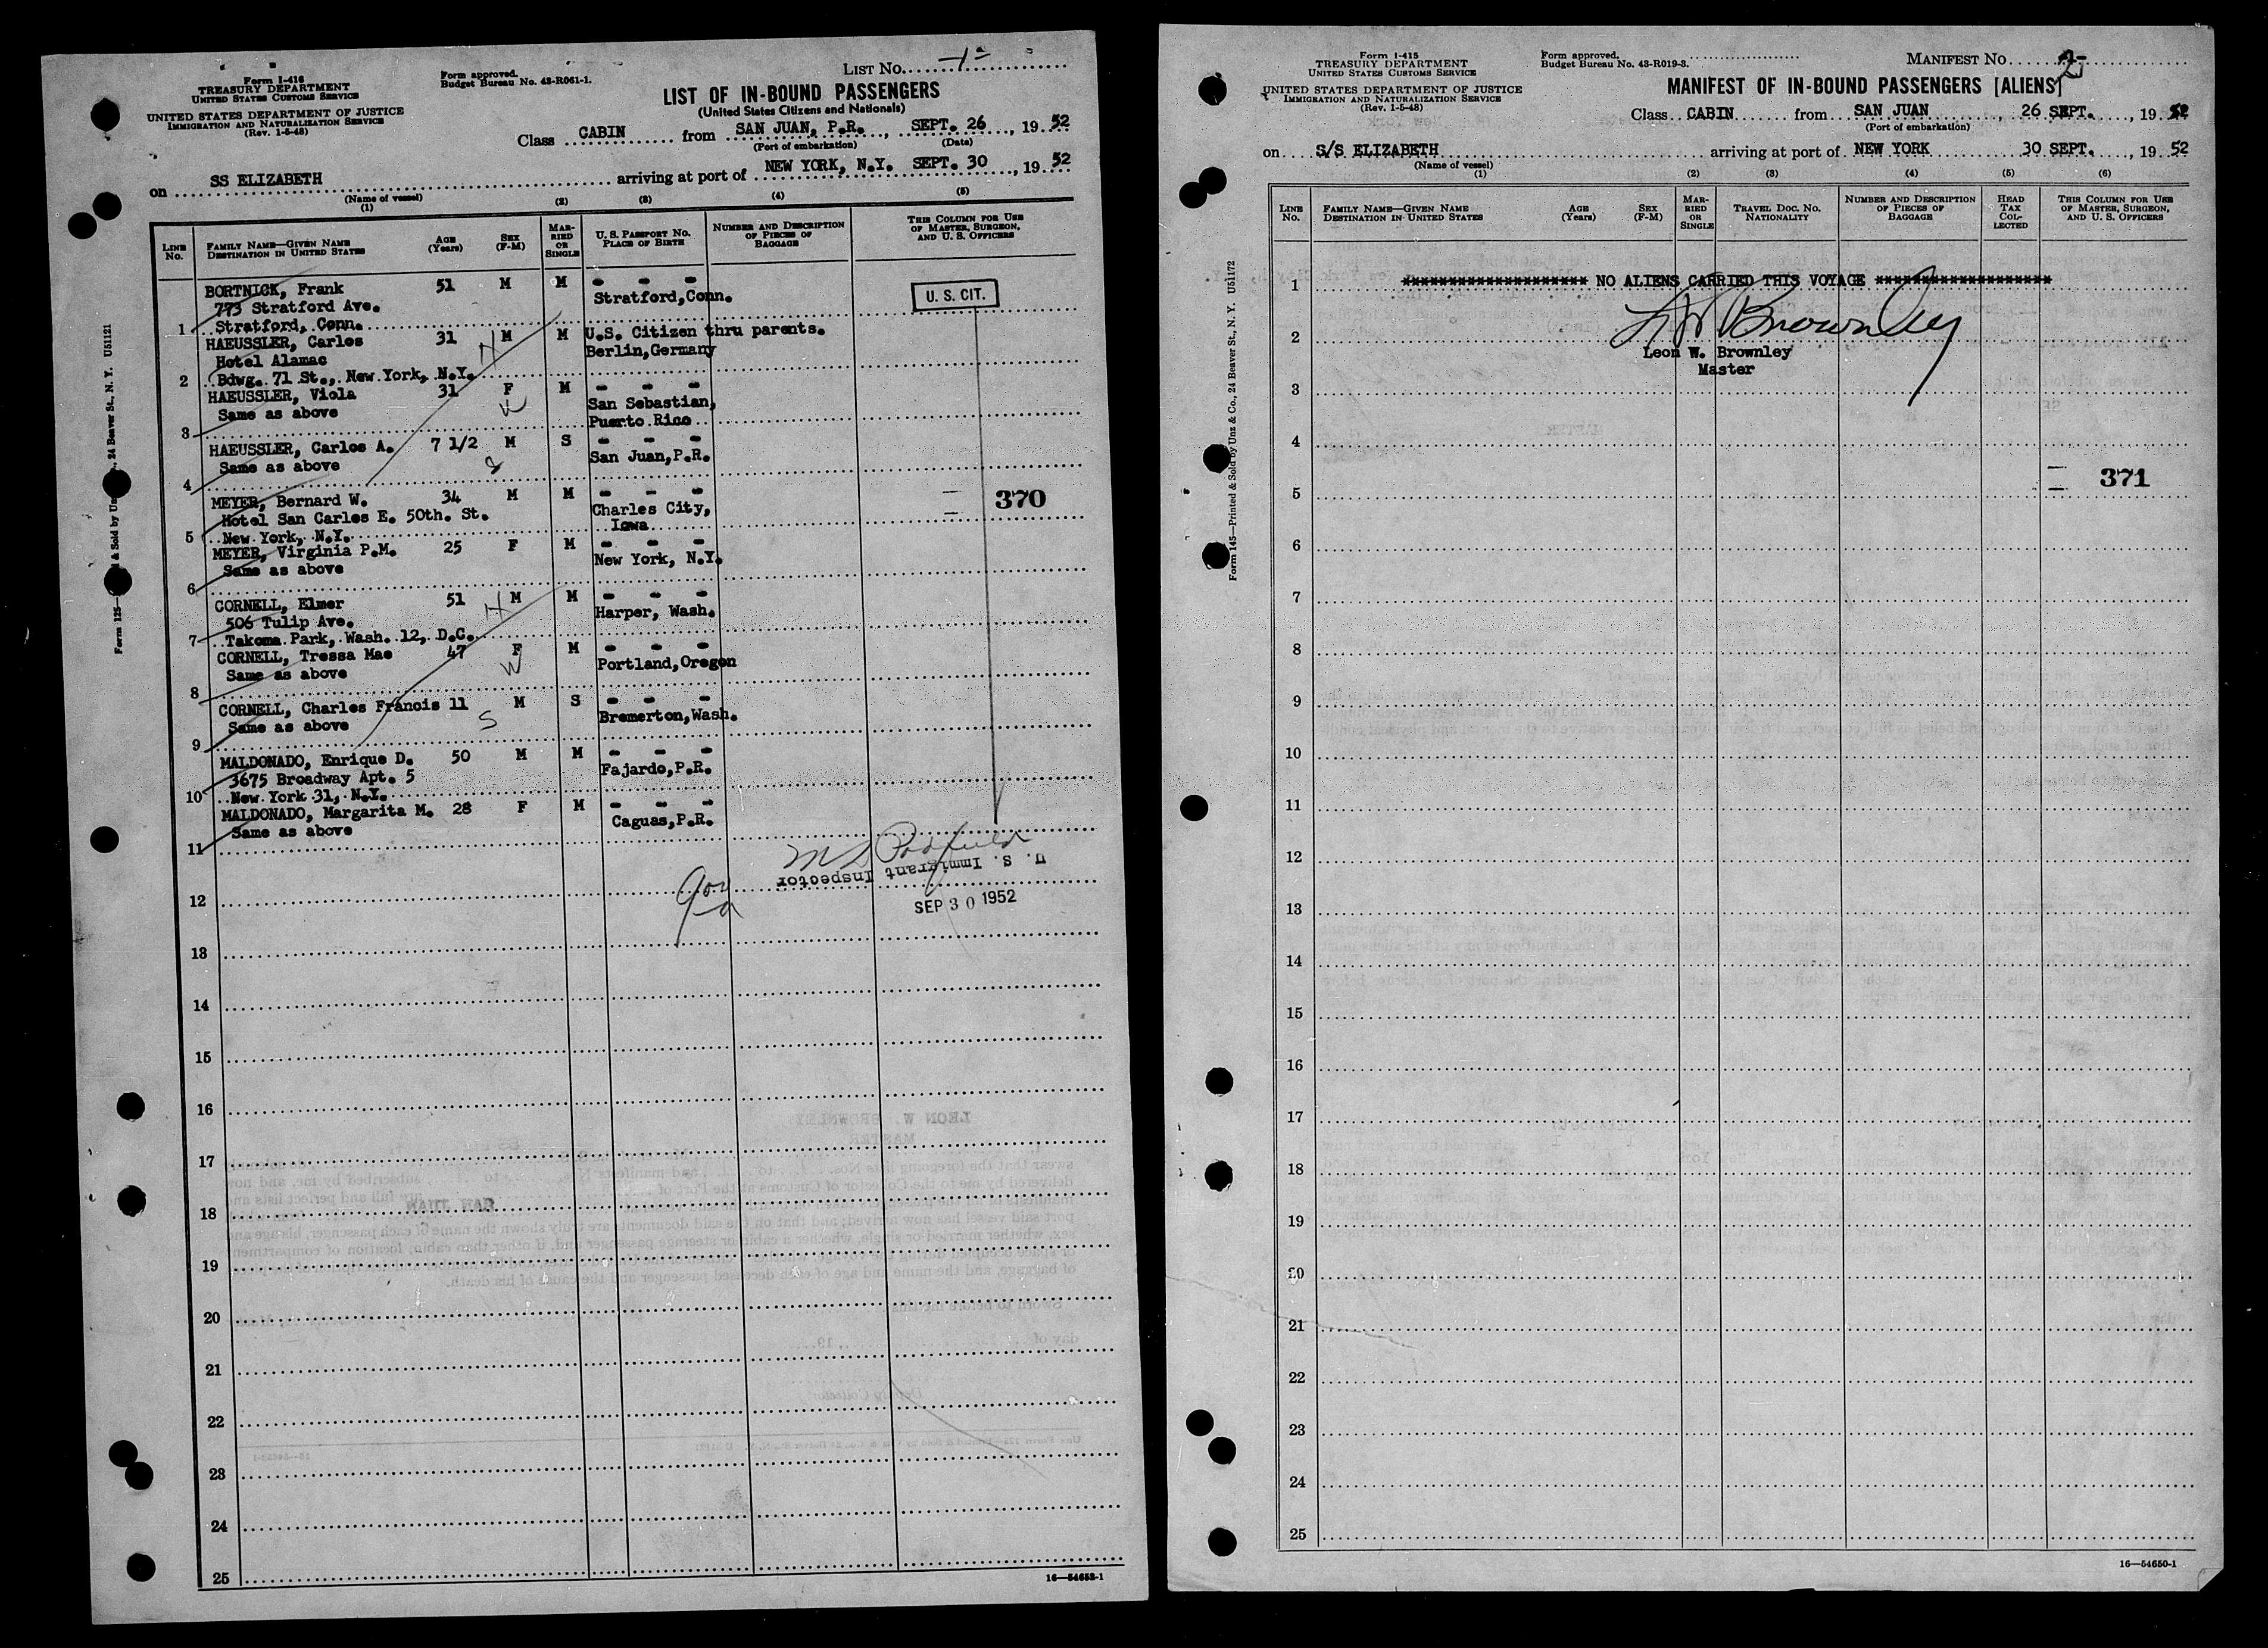 Form I-416
TREASURY DEPARTMENT
UNITED STATES CUSTOMS SERVICE
UNITED STATES DEPARTMENT OF JUSTICE
IMMIGRATION AND NATURALIZATION SERVICE
(Rev. 1-5-48)
Form approved.
Budget Bureau No. 43-R061-1.
LIST NO. 1
LIST OF IN-BOUND PASSENGERS
(United States Citizens and Nationals)
Class CABIN from SAN JUAN, P.R., SEPT. 26, 19 52
(Port of embarkation) (Date)
on SS ELIZABETH arriving at port of NEW YORK, N.Y. SEPT. 30, 19 52
(Name of vessel)
(1) (2) (3) (4) (5)
LINE No. FAMILY NAME—GIVEN NAME DESTINATION IN UNITED STATES AGE (Years) SEX (F-M) MARRIED OR SINGLE U. S. PASSPORT NO. PLACE OF BIRTH NUMBER AND DESCRIPTION OF PIECES OF BAGGAGE THIS COLUMN FOR USE OF MASTER, SURGEON, AND U. S. OFFICERS
BORTNICK, Frank 51 M M - - -
773 Stratford Ave. Stratford,Conn. U. S. CIT.
1 Stratford, Conn.
HAEUSSLER, Carlos 31 M M U.S. Citizen thru parents.
Hotel Alamac Berlin,Germany
2 Bdwg. 71 St., New York, N.Y.
HAEUSSLER, Viola 31 F M - - -
Same as above San Sebastian,
3 Puerto Rico
HAEUSSLER, Carlos A. 7 1/2 M S - - -
Same as above San Juan,P.R.
4
MEYER, Bernard W. 34 M M - - - 370
Hotel San Carlos E. 50th. St. Charles City,
5 New York, N.Y. Iowa
MEYER, Virginia P.M. 25 F M - - -
Same as above New York, N.Y.
6
CORNELL, Elmer 51 M M - - -
506 Tulip Ave. Harper, Wash.
7 Takoma Park, Wash. 12, D.C.
CORNELL, Tressa Mae 47 F M - - -
Same as above Portland,Oregon
8
CORNELL, Charles Francis 11 M S - - -
Same as above Bremerton,Wash.
9
MALDONADO, Enrique D. 50 M M - - -
3675 Broadway Apt. 5 Fajardo,P.R.
10 New York 31, N.Y.
MALDONADO, Margarita M. 28 F M - - -
Same as above Caguas,P.R.
11
U. S. Immigrant Inspector
12
SEP 30 1952
13
14
15
16
17
18
19
20
21
22
23
24
25
16—54652-1
Form I-415
TREASURY DEPARTMENT
UNITED STATES CUSTOMS SERVICE
UNITED STATES DEPARTMENT OF JUSTICE
IMMIGRATION AND NATURALIZATION SERVICE
(Rev. 1-5-48)
Form approved.
Budget Bureau No. 43-R019-3.
MANIFEST NO. 2
MANIFEST OF IN-BOUND PASSENGERS [ALIENS]
Class CABIN from SAN JUAN, 26 SEPT., 19 52
(Port of embarkation)
on S/S ELIZABETH arriving at port of NEW YORK 30 SEPT., 19 52
(Name of vessel)
(1) (2) (3) (4) (5) (6)
LINE No. FAMILY NAME—GIVEN NAME DESTINATION IN UNITED STATES AGE (Years) SEX (F-M) MARRIED OR SINGLE TRAVEL DOC. NO. NATIONALITY NUMBER AND DESCRIPTION OF PIECES OF BAGGAGE HEAD TAX COLLECTED THIS COLUMN FOR USE OF MASTER, SURGEON, AND U. S. OFFICERS
1 ******************* NO ALIENS CARRIED THIS VOYAGE ******************
L W Brownley
2
Leon W. Brownley
Master
3
4
371
5
6
7
8
9
10
11
12
13
14
15
16
17
18
19
20
21
22
23
24
25
16—54650-1
Form 145—Printed & Sold by Unz & Co., 24 Beaver St., N. Y. U51172